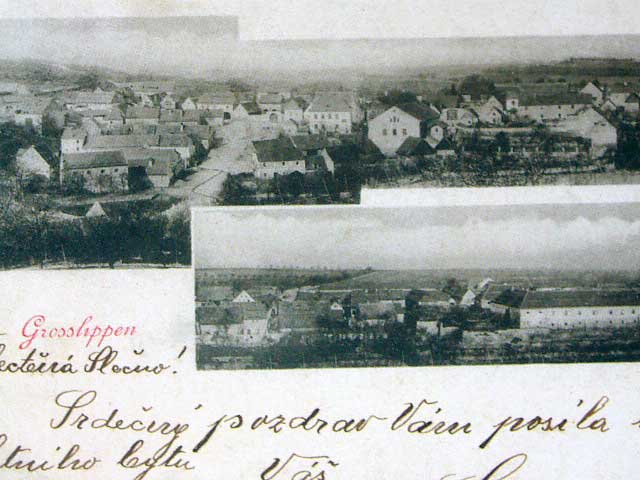 Grosslippen
ectěná Slečno!
Srdečný pozdrav Vám posílá
letního bytu
Váš